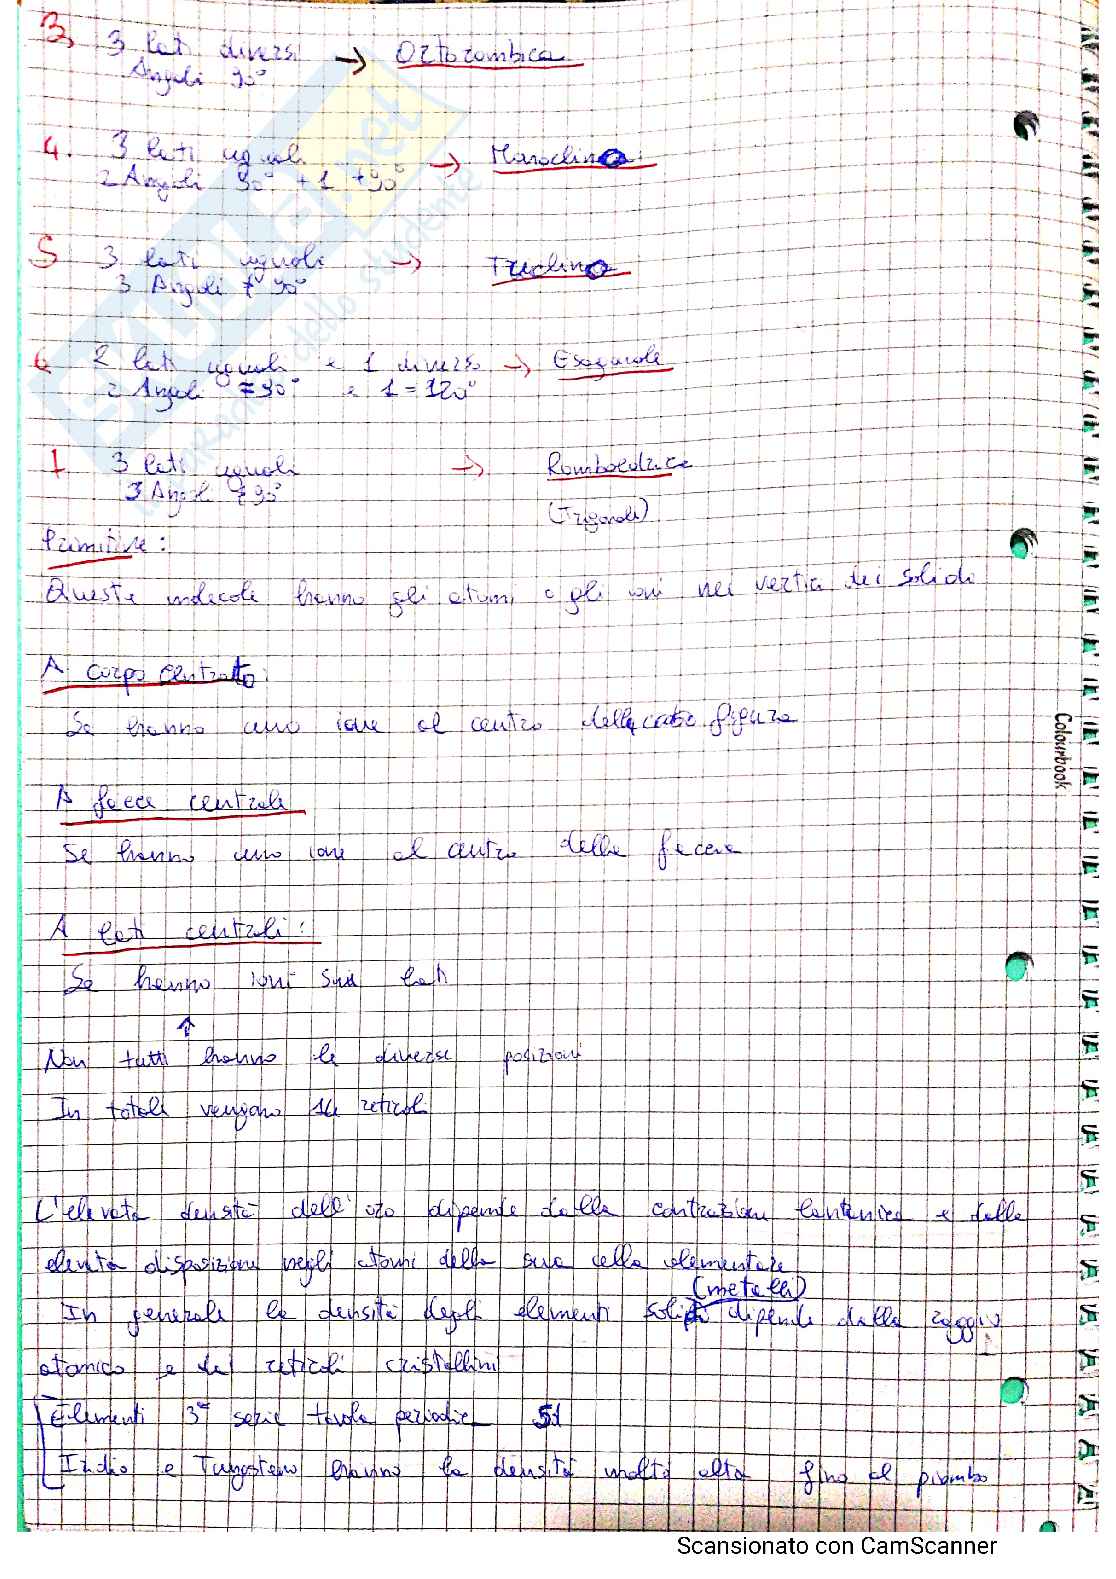 3. 3 lati diversi → Ortorombica
Angoli 90°
4. 3 lati uguali → Monoclino
2 Angoli 90° + 1 ≠90°
5 3 lati uguali → Triclino
3 Angoli ≠ 90°
6 2 lati uguali e 1 diverso → Esagonale
2 Angoli = 90° e 1 = 120°
7. 3 lati uguali → Romboedrica
3 Angoli ≠ 90°
(Trigonale)
Primitive:
Queste molecole hanno gli atomi o gli ioni nei vertici dei solidi
A corpo centrato:
Se hanno uno ione al centro della figura
A facce centrale
Se hanno uno ione al centro delle facce
A lati centrali:
Se hanno ioni sui lati
↑
Non tutti hanno le diverse posizioni
In totale vengono 14 reticoli
L'elevata densità dell'oro dipende dalla contrazione lantanica e dalla
elevata disposizione negli atomi della sua cella elementare
(metalli)
In generale la densità degli elementi solidi dipende dalla raggio
atomico e dei reticoli cristallini
Elementi 3ª serie tavola periodica
Iridio e Tungsteno hanno la densità molto alta fino al piombo
Colourbook
Scansionato con CamScanner